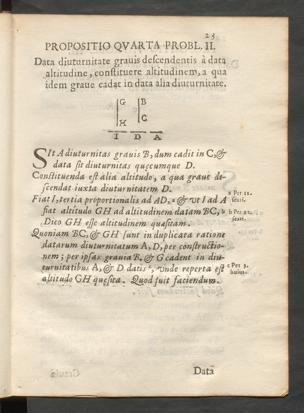 23
PROPOSITIO QVARTA PROBL. II.
Data diuturnitate grauis descendentis à data
altitudine, constituere altitudinem, a qua
idem graue cadat in data alia diuturnitate.
G B
H C
I D A
SIt A diuturnitas grauis B, dum cadit in C, &
data sit diuturnitas quæcumque D.
Constituenda est alia altitudo, a qua graue de-
scendat iuxta diuturnitatem D.
Fiat I, tertia proportionalis ad AD, & vt I ad A
a Per 11.
sexti.
fiat altitudo GH ad altitudinem datam BC,
b Per 12.
Dico GH esse altitudinem quæsitam.
Quoniam BC, & GH sunt in duplicata ratione
datarum diuturnitatum A, D, per constructio-
nem; per ipsas grauia B, & G cadent in diu-
turnitatibus A, & D datis c, vnde reperta est
c Per 3.
huius.
altitudo GH quesita. Quod fuit faciendum.
Data